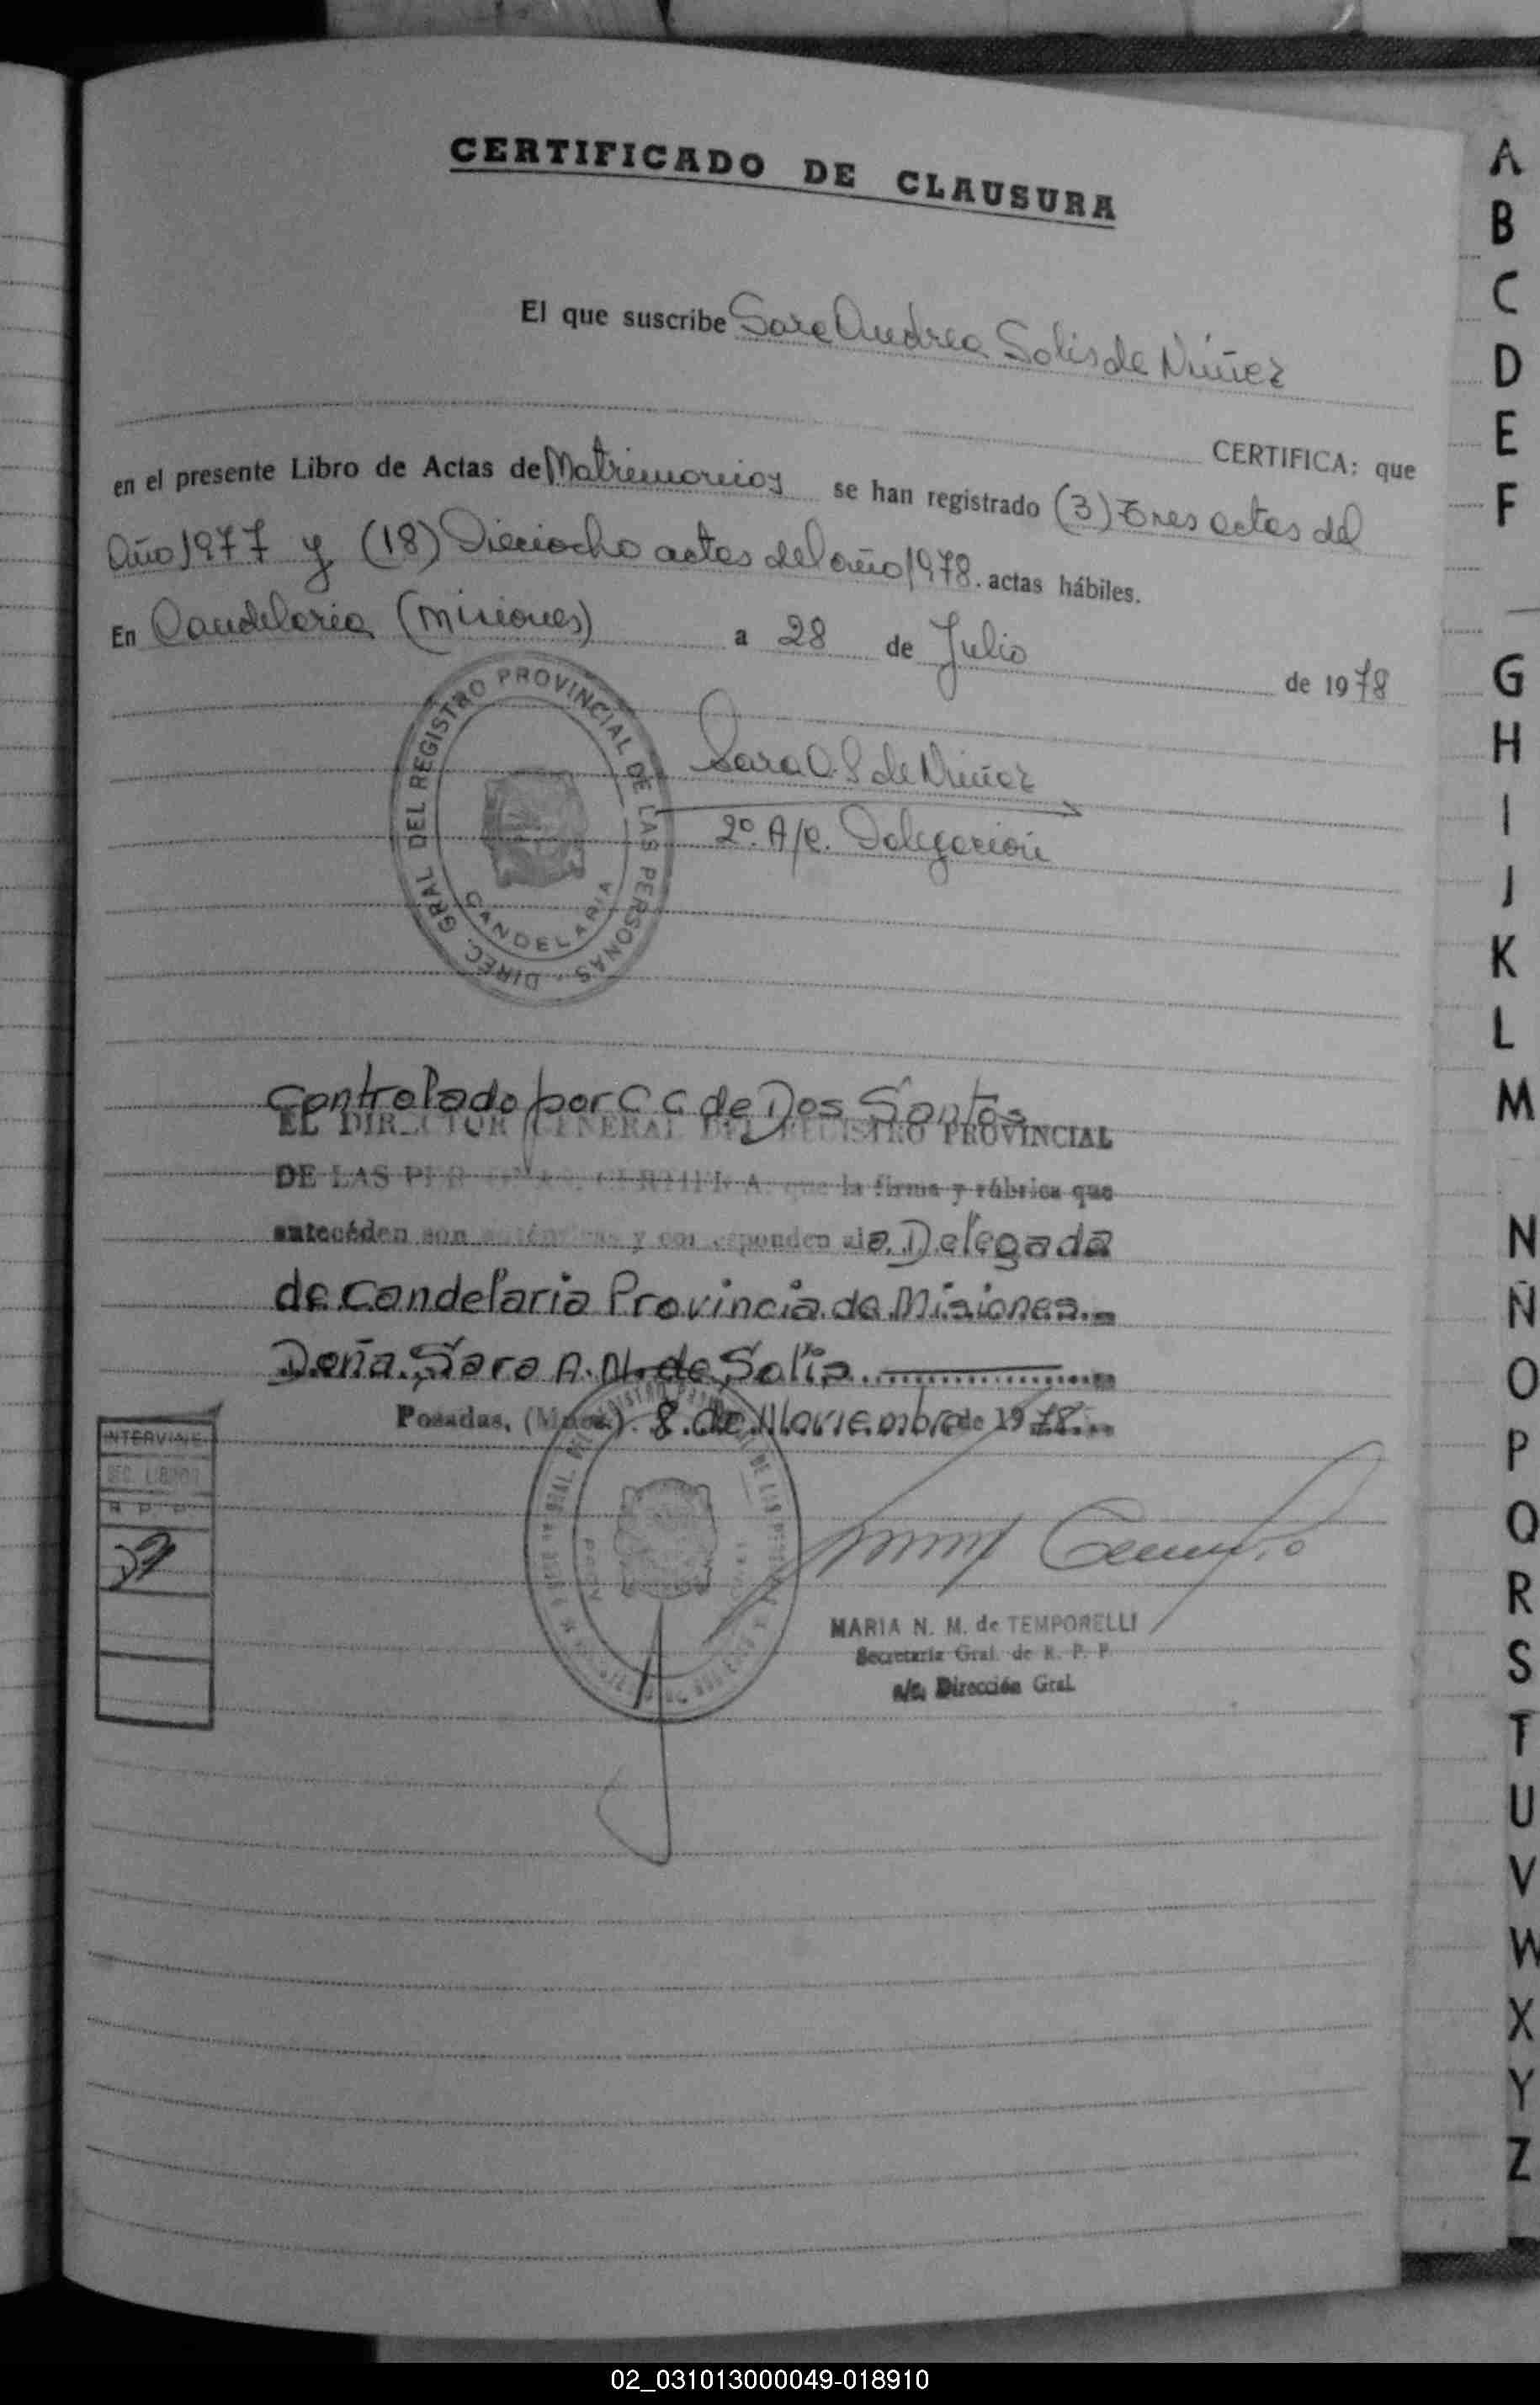 CERTIFICADO DE CLAUSURA
El que suscribe Sara Andrea Solis de Núñez
CERTIFICA: que
en el presente Libro de Actas de Matrimonios se han registrado (3) Tres actas del
Año 1977 y (18) Dieciocho actas del año 1978. actas hábiles.
En Candelaria (Misiones) a 28 de Julio de 1978
DIREC. GRAL DEL REGISTRO PROVINCIAL DE LAS PERSONAS
CANDELARIA
Sara A. S de Núñez
2º. A/c. Delegación
Controlado por C C de Dos Santos
EL DIRECTOR GENERAL DEL REGISTRO PROVINCIAL
DE LAS PERSONAS, CERTIFICA: que la firma y rúbrica que
antecéden son auténticas y corresponden a la Delegada
de Candelaria Provincia de Misiones.-
Doña Sara A. N. de Solis
Posadas, (Mnes.) 8 de Noviembre de 1978
INTERVINE
SEC. LIBROS
R P P
MARIA N. M. de TEMPORELLI
Secretaria Gral. de R. P. P.
a/c. Dirección Gral.
A
B
C
D
E
F
G
H
I
J
K
L
M
N
Ñ
O
P
Q
R
S
T
U
V
W
X
Y
Z
02_031013000049-018910